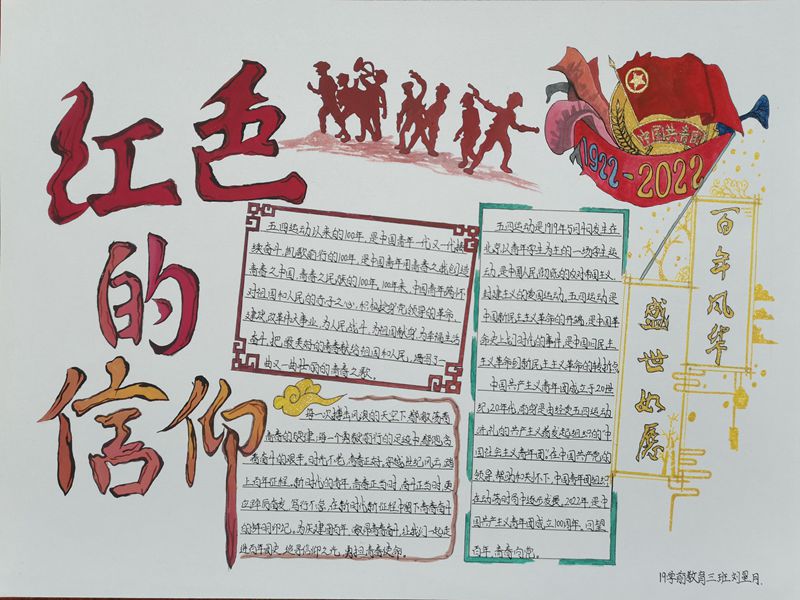 红色
的
信仰
中国共青团
1922-2022
百年风华
盛世如愿
五四运动以来的100年,是中国青年一代又一代接
续奋斗、凯歌前行的100年,是中国青年用青春之我创造
青春之中国、青春之民族的100年。100年来,中国青年满怀
对祖国和人民的赤子之心,积极投身党领导的革命
建设、改革伟大事业,为人民战斗、为祖国献身、为幸福生活
奋斗,把最美好的青春献给祖国和人民,谱写了一
曲又一曲壮丽的青春之歌。
每一次搏击风浪的天空下都激荡着
青春的旋律,每一个勇毅前行的足迹中都饱含
青春奋斗的艰辛。时光不老,青春正好,穿越世纪风云,踏
上百年征程,新时代的青年,青春正当时,奋斗正当时,更
应踔厉奋发、笃行不怠,在新时代新征程中留下青春奋斗
的鲜明印记。为庆建团百年,激昂青春奋斗,让我们一起走
进百年团史,追寻信仰之光,勇担青春使命。
五四运动是1919年5月4日发生在
北京以青年学生为主的一场学生运
动,是中国人民彻底的反对帝国主义、
封建主义的爱国运动,五四运动是
中国新民主主义革命的开端,是中国革
命史上划时代的事件,是中国旧民主
主义革命到新民主主义革命的转折点。
中国共产主义青年团成立于20世
纪20年代,
洗礼的共产主义者发起组织的中
国社会主义青年团,在中国共产党的
领导、帮助和关怀下,中国青年团组织
在动荡时局中逐步发展。2022年,是中
国共产主义青年团成立100周年,回望
百年,青春向党。
19学前教育三班 刘星月